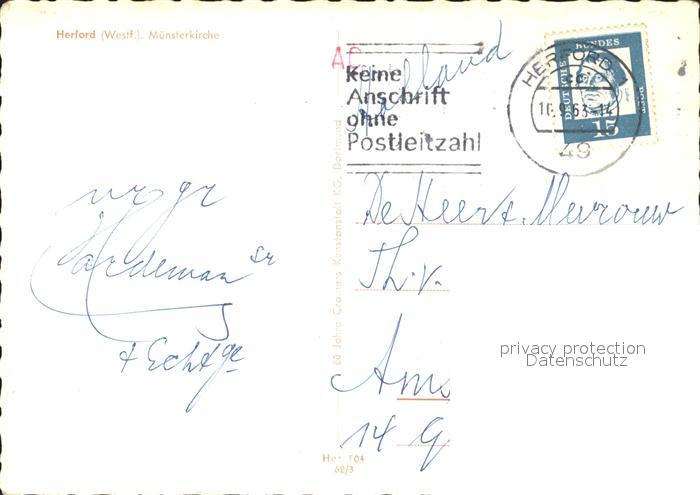 Herford (Westf.). Münsterkirche
Holland
Keine
Anschrift
ohne
Postleitzahl
HERFORD 1
10.9.63-14
49
DEUTSCHE BUNDESPOST
15
vr gr
Hardeman sr
+ Echtge
De Heer + Mevrouw
Th. v.
Ams
14 G
60 Jahre Cramers Kunstanstalt KG, Dortmund
Her 104
62/3
privacy protection
Datenschutz